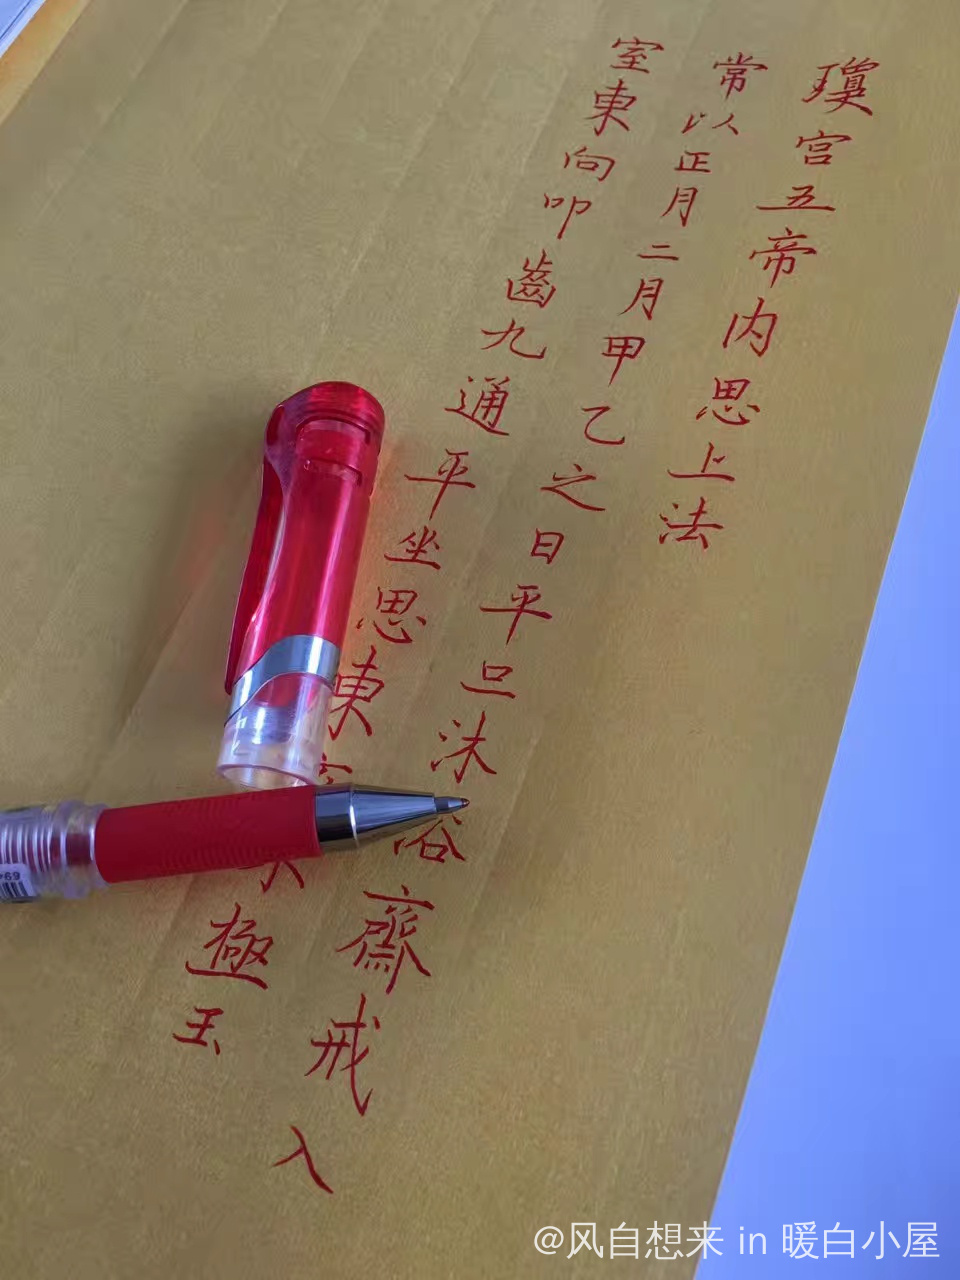 瓊宫五帝内思上法
常以正月二月甲乙之日平旦沐浴齋戒入
室東向叩齒九通平坐思東極玉
@风自想来 in 暖白小屋